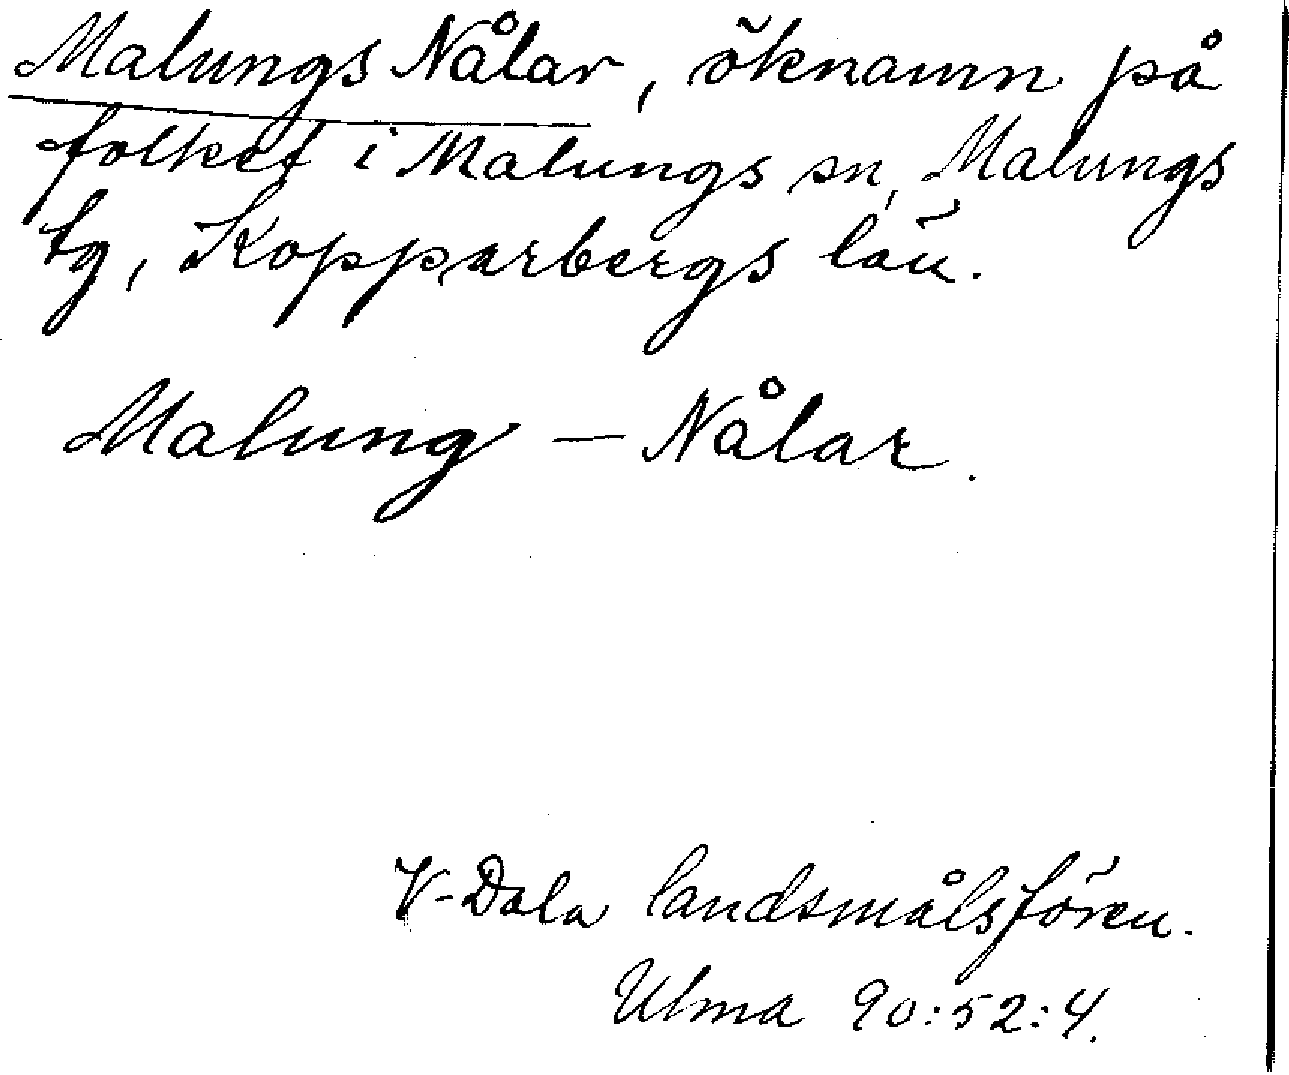 Malungs Nålar, öknamn på
folket i Malungs sn, Malungs
tg, Kopparbergs län.
Malung – Nålar.
V-Dala landsmålsfören.
Ulma 90:52:4.